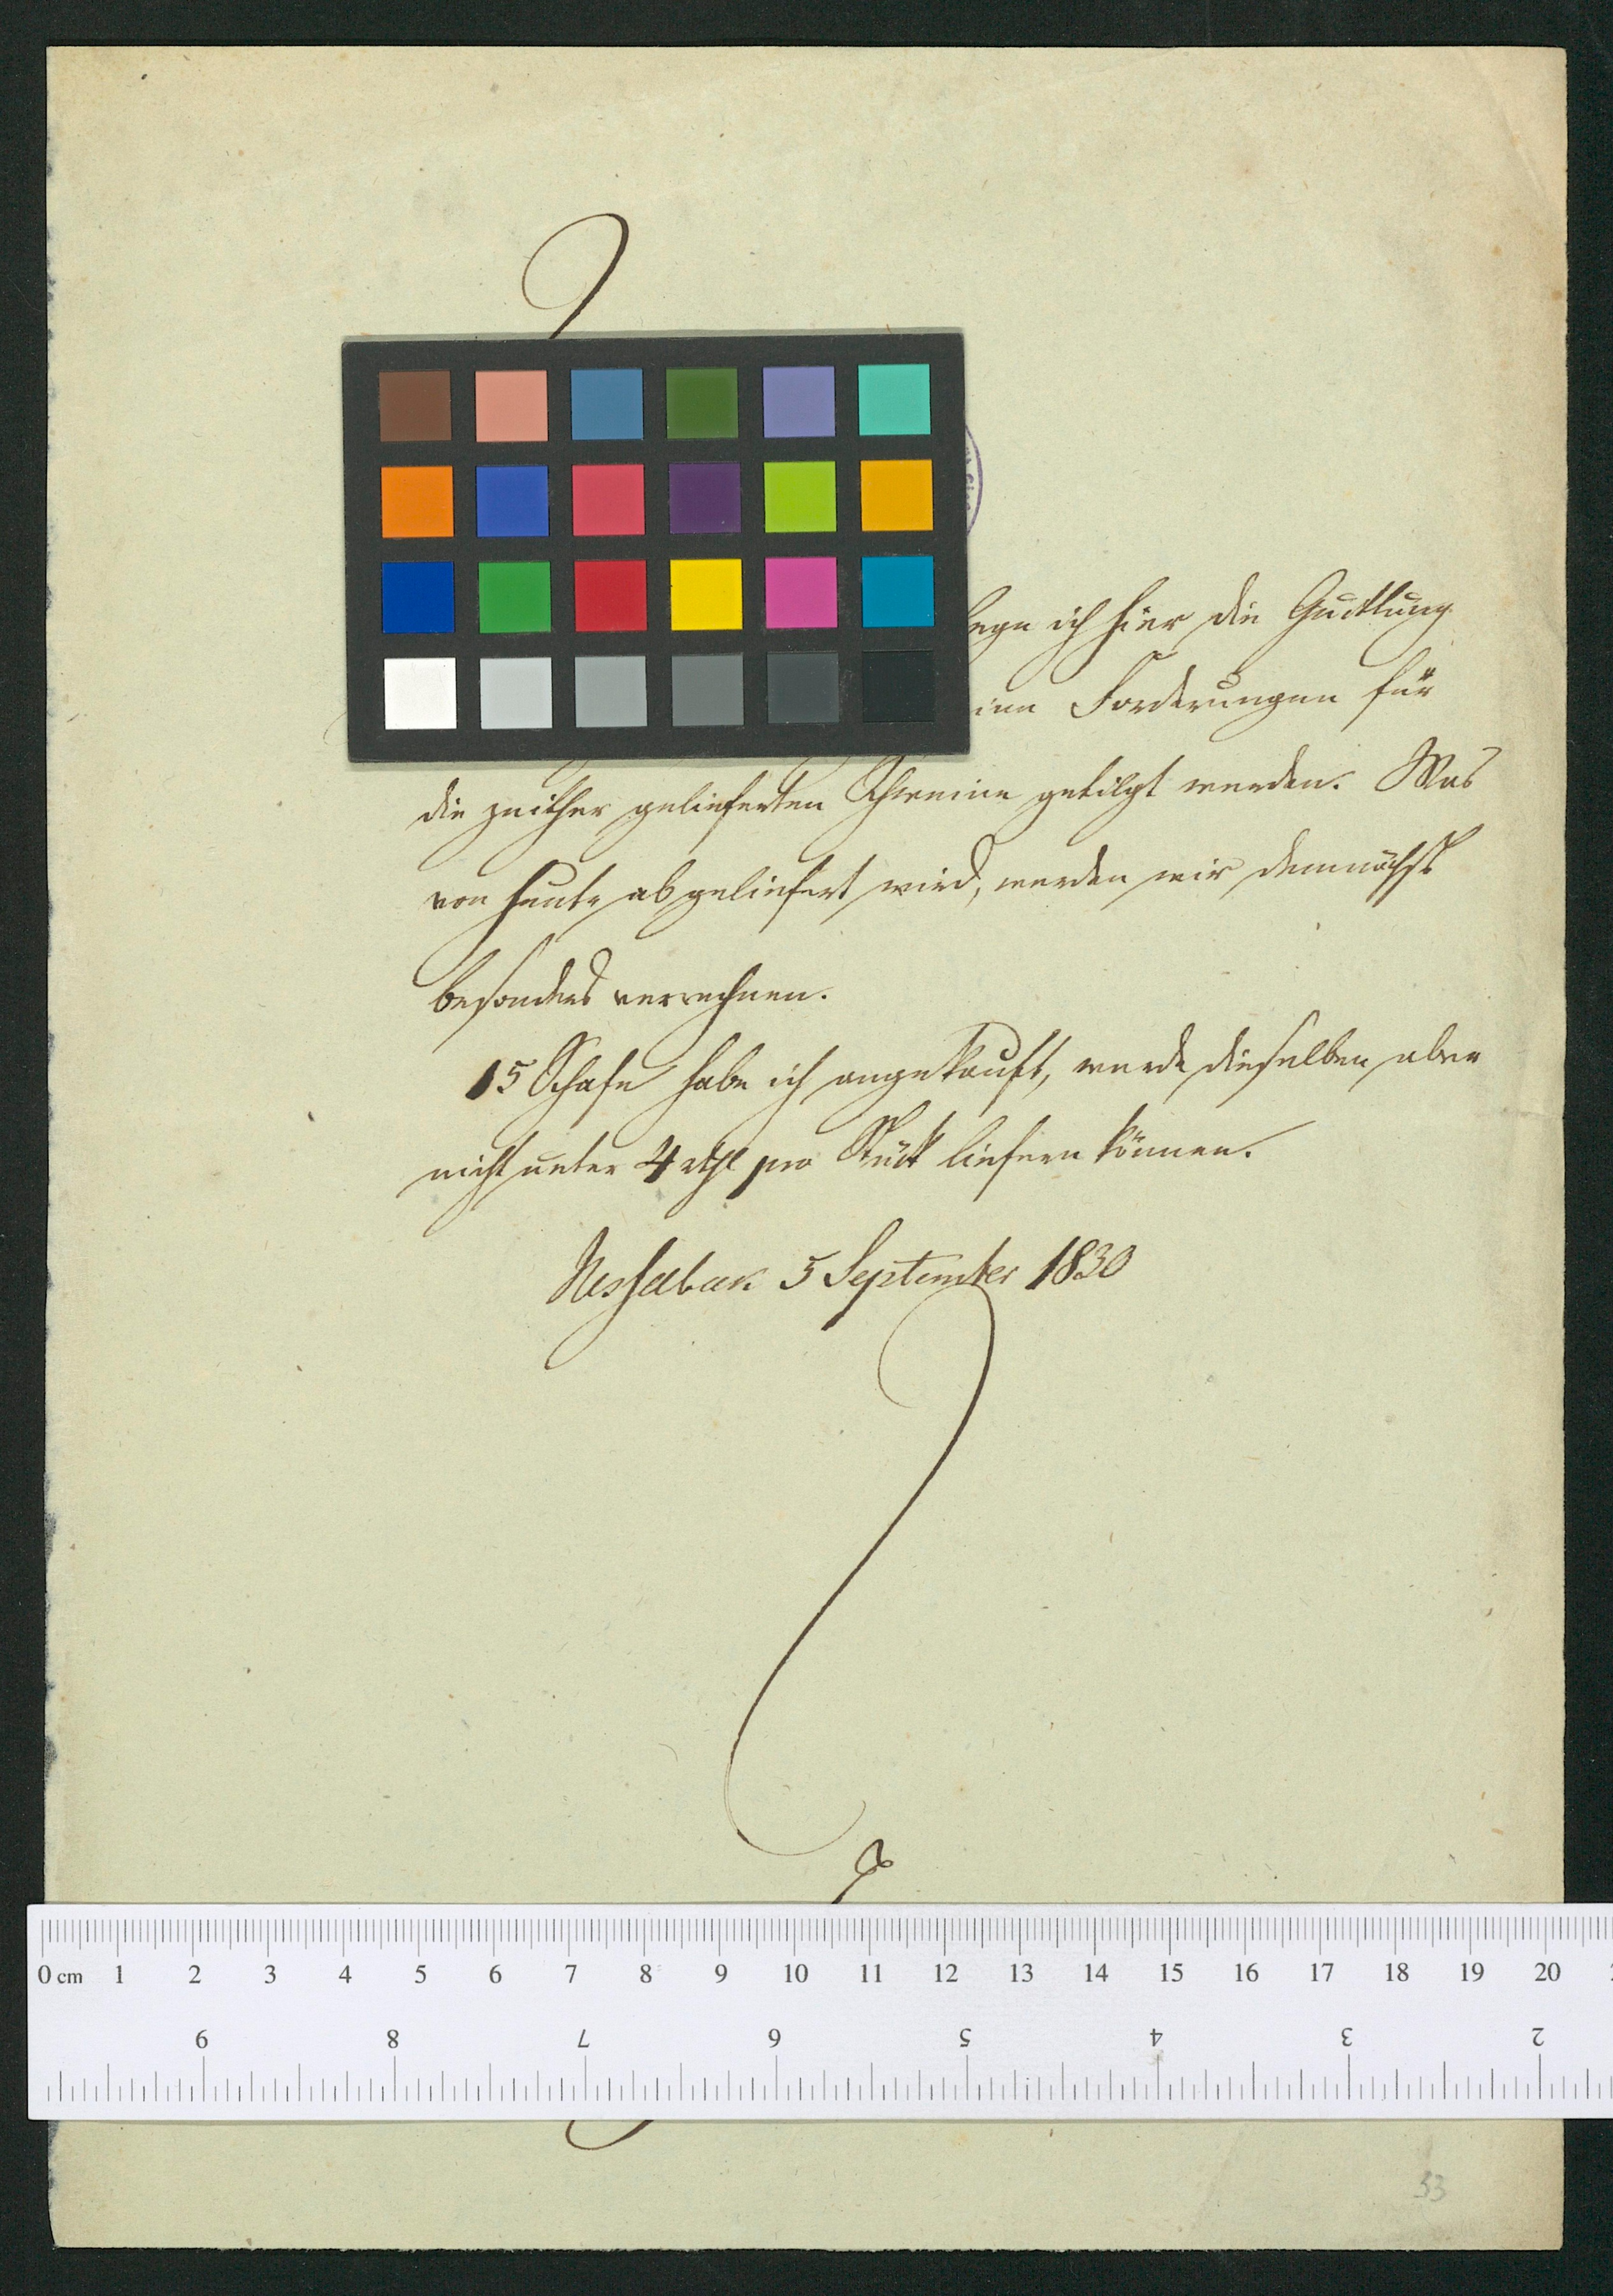 lege ich hier die Quittung
Forderungen für
die zeither gelieferten Schweine getilgt werden. Was
von heute ab geliefert wird, werden wir demnächst
besonders verrechnen.
15 Schafe habe ich angekauft, werde dieselben aber
nicht unter 4 rthl pro Stück liefern können.
5 September 1830
0 cm 1 2 3 4 5 6 7 8 9 10 11 12 13 14 15 16 17 18 19 20
9 8 7 6 5 4 3 2
33